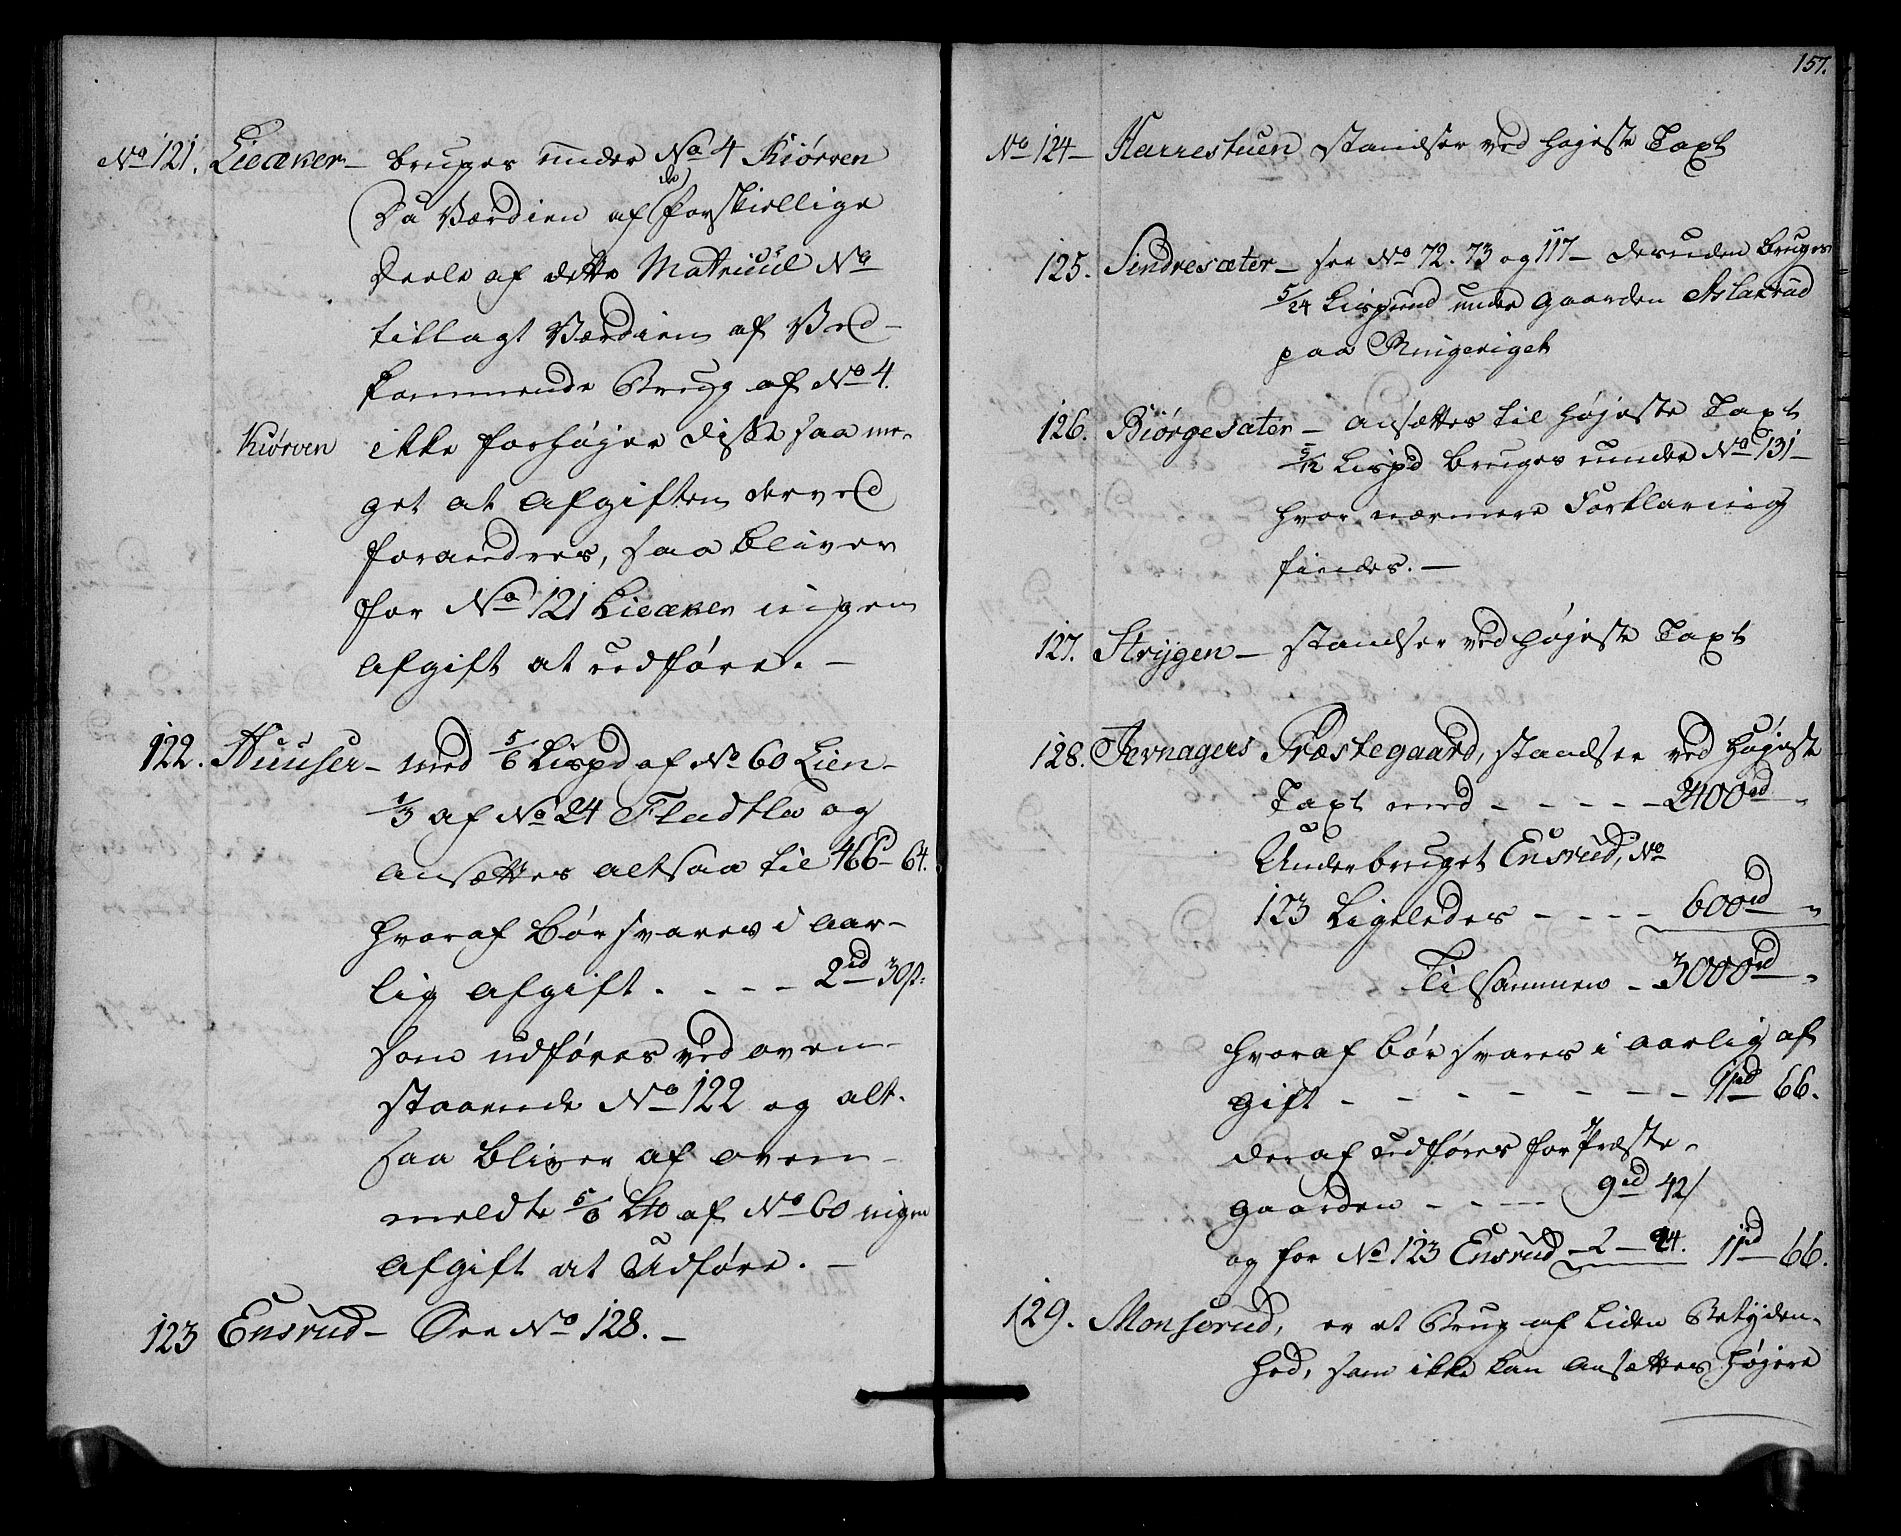 No 121. Lieæker – bruges under No 4 Kiørven
Da Værdien af de forskiellige
Deele af dette Matricul No
tillagt Værdien af Ved-
kommende Brug af No 4.
Kiørven ikke forhøjer diste saa me-
get at Afgiften derved
forandres, saa bliver
for No 121 Lieæker ingen
Afgift at udføre. –
122. Huuser – med 5/6 Lispd af No 60 Lien –
1/3 af No 24 Fladtla og
ansættes altsaa til 466rd – 64.
hvoraf bør svares i aar-
lig afgift . – – – 2rd 30s:
som udføres ved oven-
staaende No 122 og alt-
saa bliver af oven-
meldte 5/6 Lb af No 60 ingen
Afgift at Udføre. –
123 Ensrud – See No 128. –
157.
No 124 – Harrestuen standser ved højeste Taxt
125. Sindresæter – see No 72. 73 og 117 – desuden bruges
5/24 Lispund under gaarden Aslakrud
paa Ringeriget
126. Biørgesæter – ansættes til højeste Taxt
5/12 Lispd bruges under No 131 –
hvor nærmere Forklaring
findes. –
127. Strygen – standser ved højeste Taxt
128. Jevnagers Præstegaard, standser ved højeste
Taxt med – – – – – 2400rd „
Underbruget Ensrud, No
123 Ligeledes – – – – 600rd „
Tilsammen – 3000rd „
hvoraf bør svares i aarlig af
gift – – – – – – – 11rd 66.
deraf udføres for Præste-
gaarden – – – – 9rd 42/
og for No 123 Ensrud – 2 – 24. 11rd – 66.
129. Monserud, er et Brug af liden Betyden-
hed, som ikke kan ansættes højere